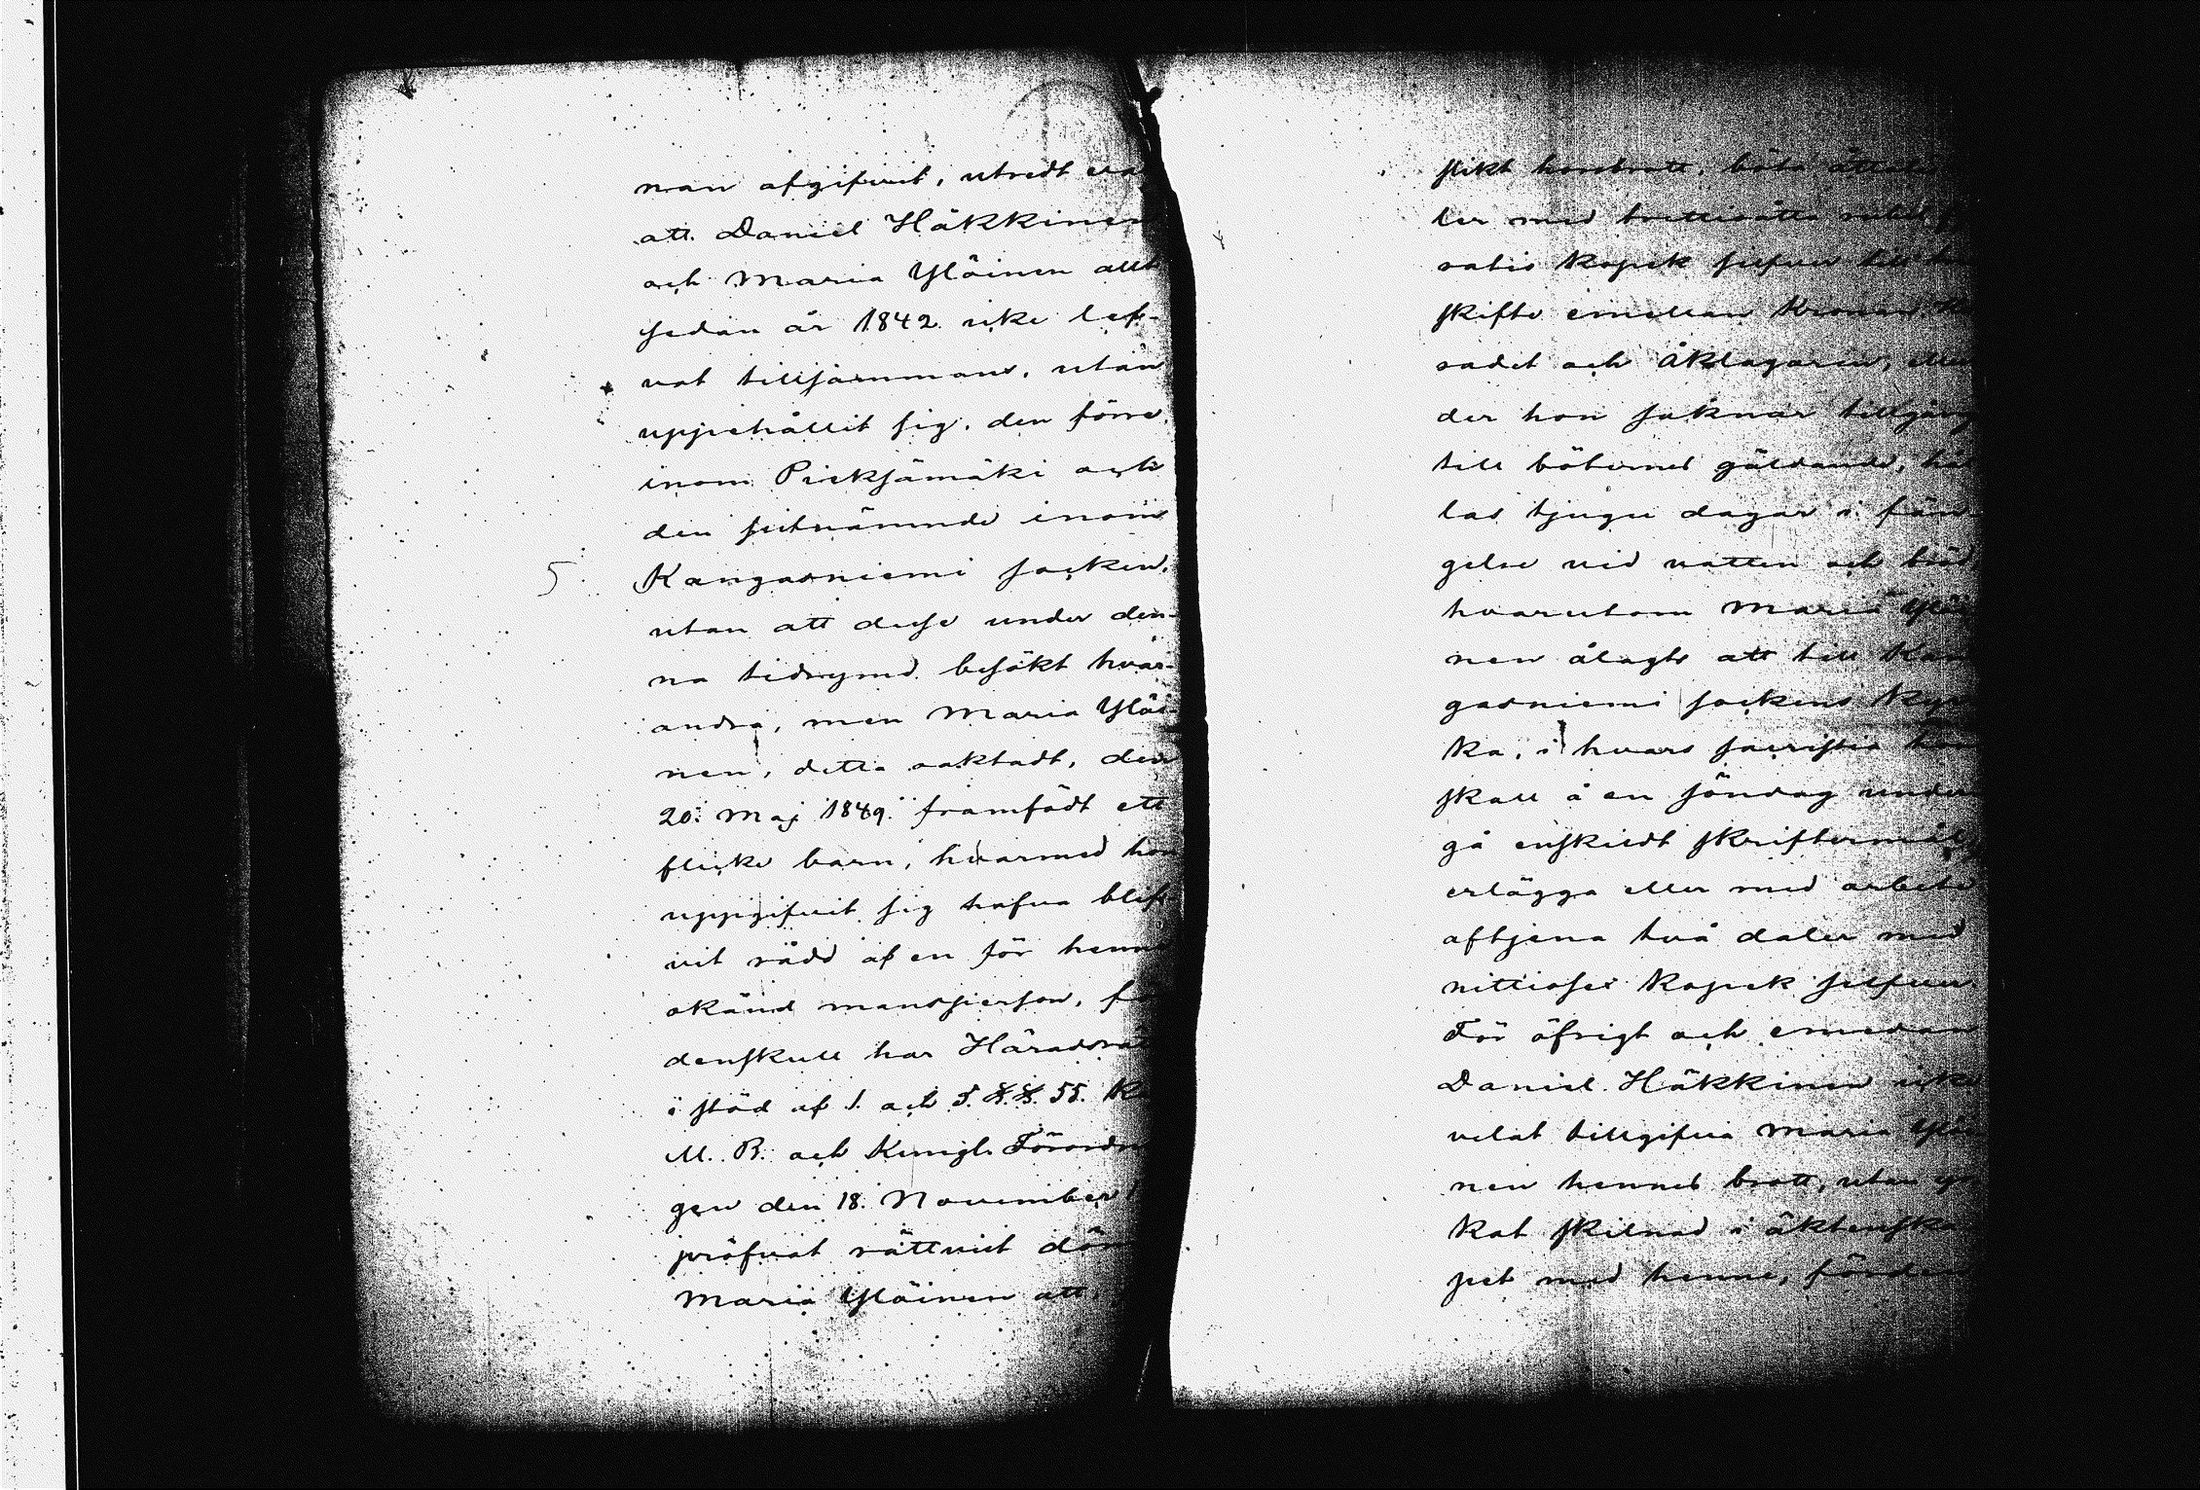 man afgifvit, utredt
att Daniel Häkkinen
och Maria Yläinen allt
sedan år 1842 icke lef-
vat tillsammans, utan
uppehållit sig, den förre
inom Pieksämäki och
den sistnämnde inom
5 Kangasniemi socken,
utan att desse under den-
na tidrymd besökt hvar-
andra, men Maria Yläi-
nen, detta oaktadt, den
20. Maj 1849. framfödt ett
flicke barn, hvarmed hon
uppgifvit sig hafva blif-
vit rådd af en för henne
okänd mansperson, för
denskull har Häradsrä
i stöd af 1. och 5. §.§. 55. Ka
M. B. och Kungl. Förordni
gen den 18. November
pröfvat rättvist döm
Maria Yläinen att,
slikt horsbrott, böta åttati
ler med trettioåtta rubel,
ratio kopek silfver till
skifte emellan Kronan, Hä
radet och Åklagaren, eller
der hon saknar tillgång
till böternes gäldande, hål
las tjugu dagar i fän-
gelse vid vatten och bröd,
hvarutom Maria Yläi
nen ålagts att till Kan
gasniemi sockens kyr
ka, i hvars sacristia hon
skall å en söndag under
gå enskildt skriftermål,
erlägga eller med arbete
aftjena två daler med
nittiosex kopek silfver.
För öfrigt och emedan
Daniel Häkkinen icke
velat tillgifva Maria Yläi
nen hennes brott, utan yr
kat skilnad i äktenska
pet med henne,